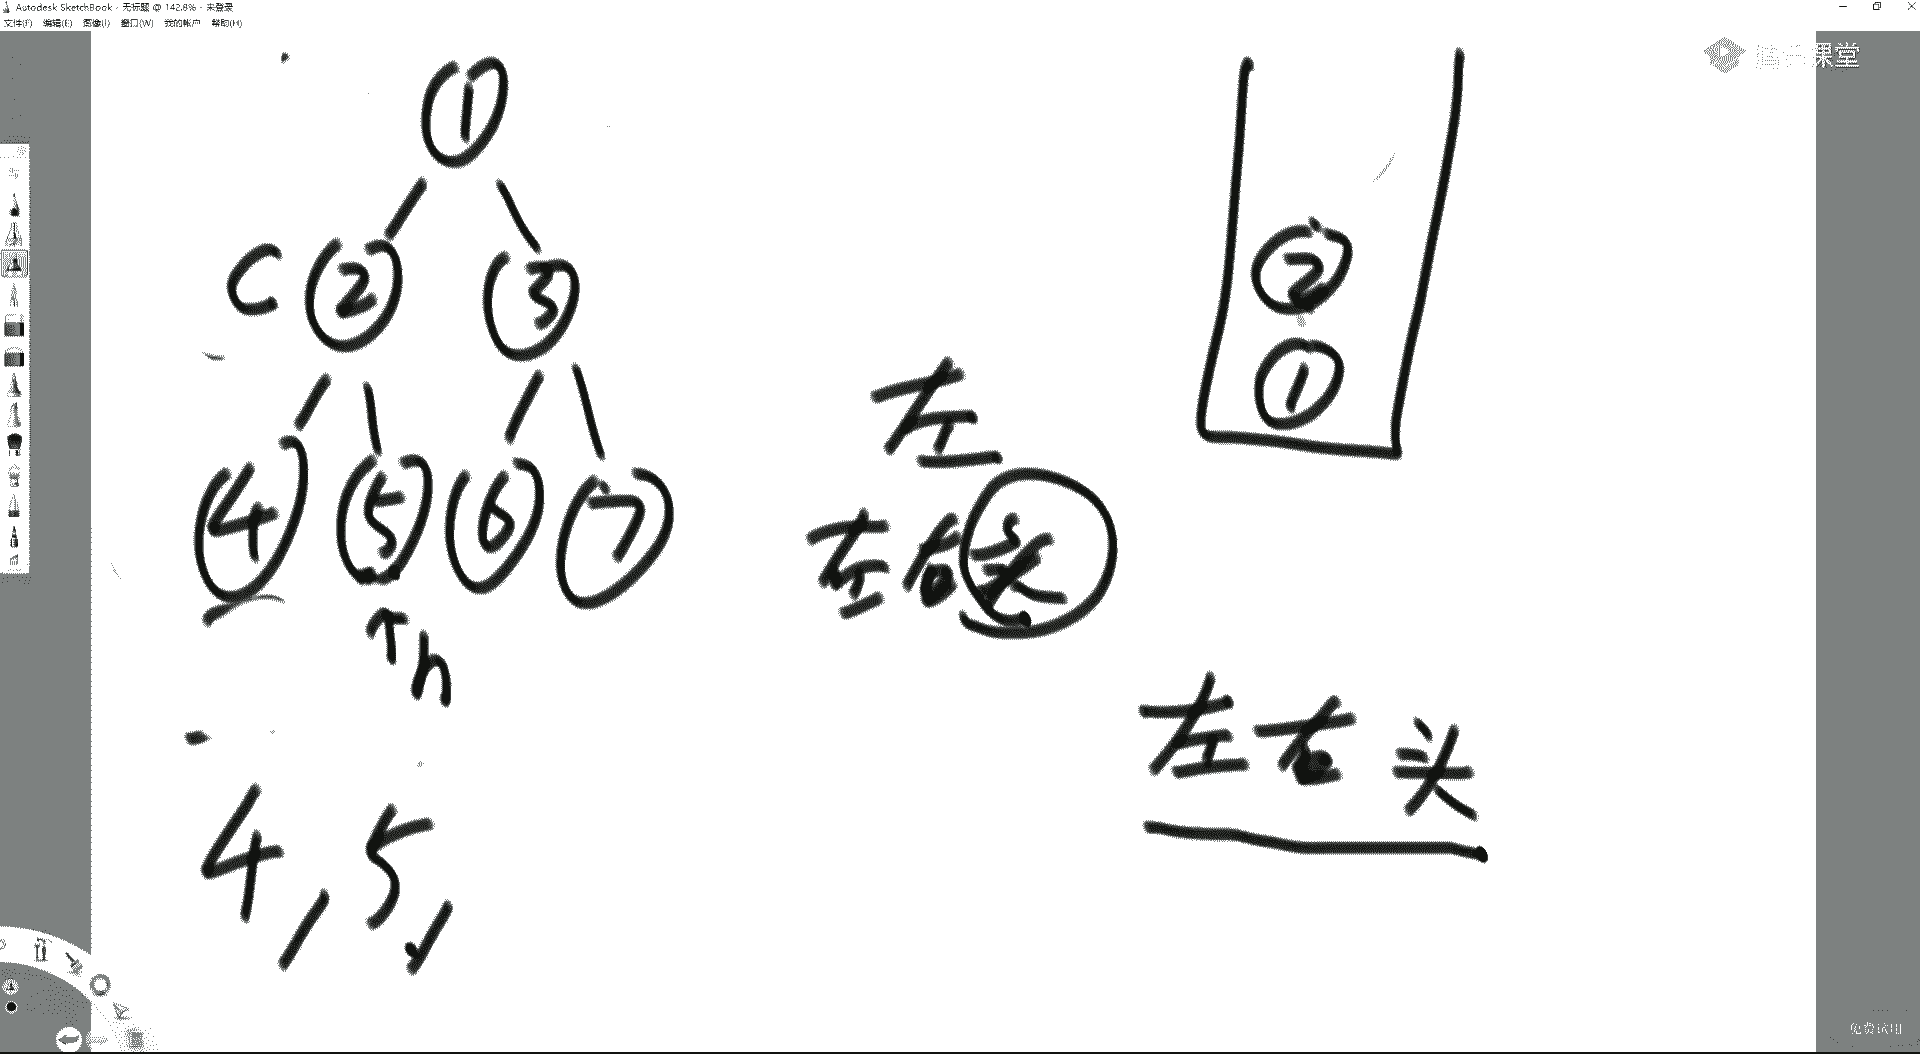 Autodesk SketchBook - 无标题 @ 142.8% - 未登录
文件(F) 编辑(E) 图像(I) 窗口(W) 我的帐户 帮助(H)
腾讯课堂
1
C 2 3
4 5 6 7
h
4, 5,
2
1
左
左右头
左右头
免费试用